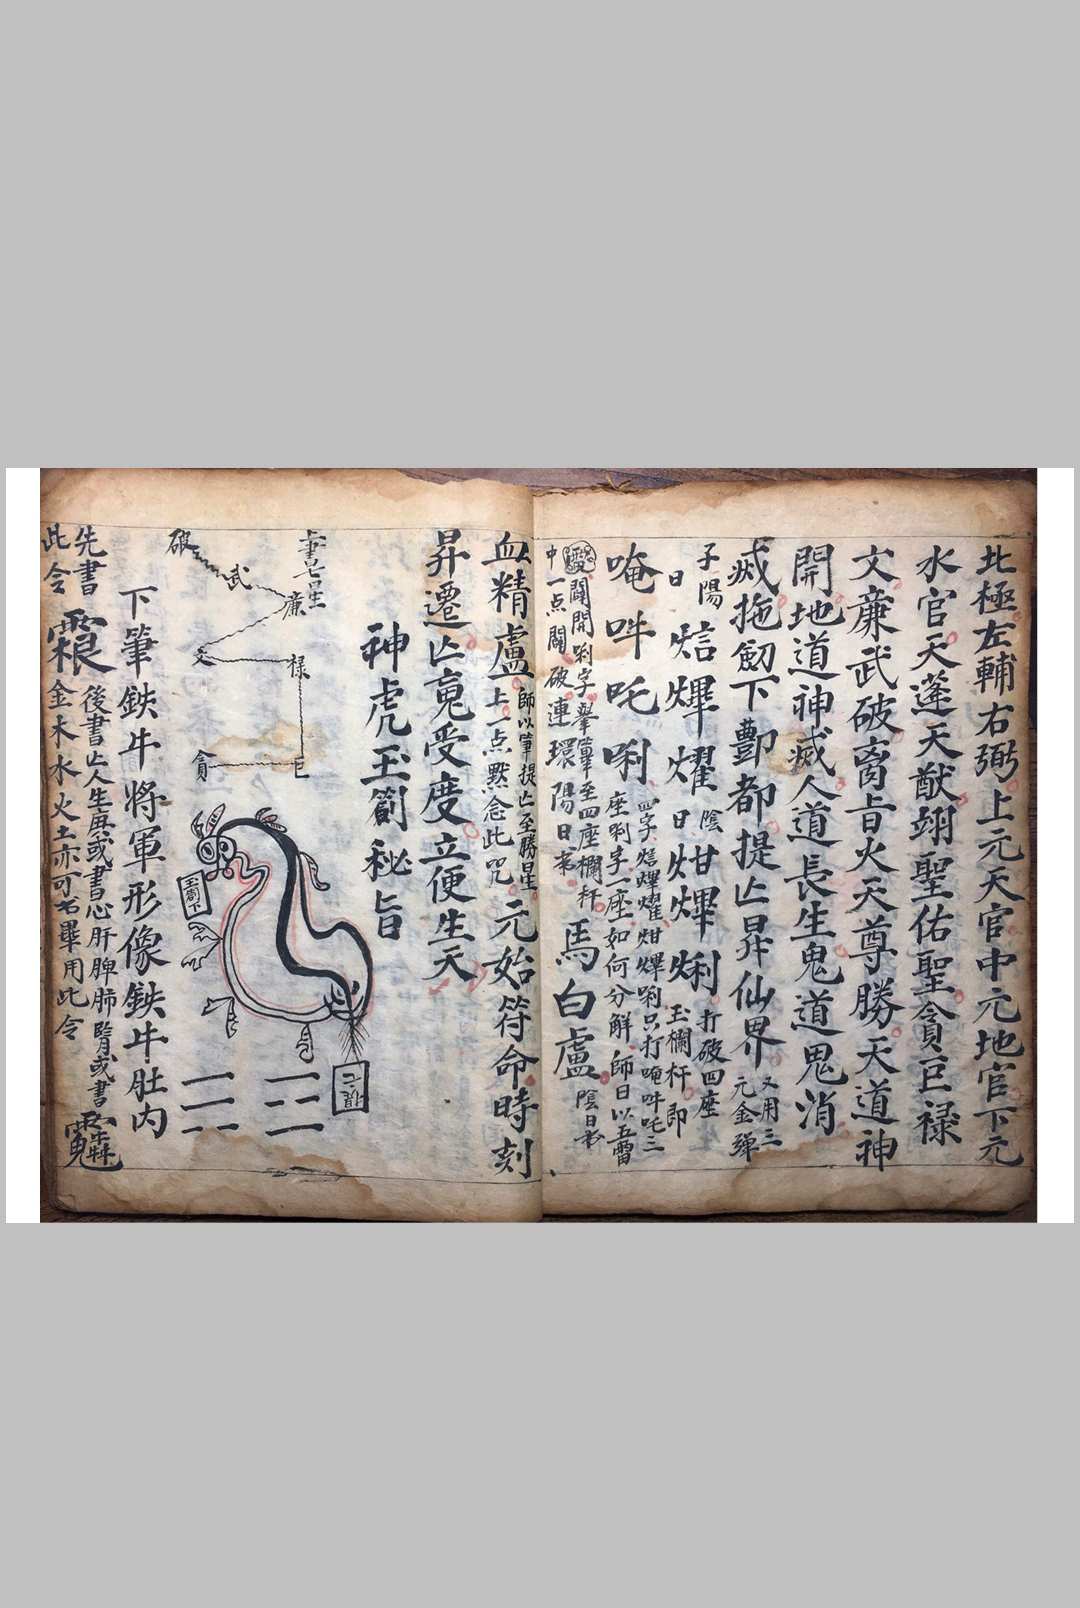 北極左輔右弼上元天官中元地官下元
水官天蓬天猷翊聖佑聖貪巨禄
文廉武破离㫖火天尊勝天道神
開地道神滅人道長生鬼道鬼消
滅拖劒下酆都提亡昇仙界 又用三元金彈
子陽日 焅熚燿 陰日 炦熚唎 打破四座玉欄杆即
唵吽吒唎 四字焅熚燿炦熚唎只打唵吽吒三座唎字一座如何分解師曰以五雷
闢開唎字擧筆至四座欄杆中一点闢破連環陽日 馬白盧 陰日
血精盧 師以筆提亡至勝星上一点黙念此咒 元始符命時刻
昇遷亡䰟受度立便生天
神虎玉劄秘旨
書七星
破
武
廉
文
禄
貪
巨
玉劄下
下筆鉄牛將軍形像鉄牛肚内
先書此令
後書亡人生庚或書心肝脾肺腎或書金木水火土亦可書畢用此令